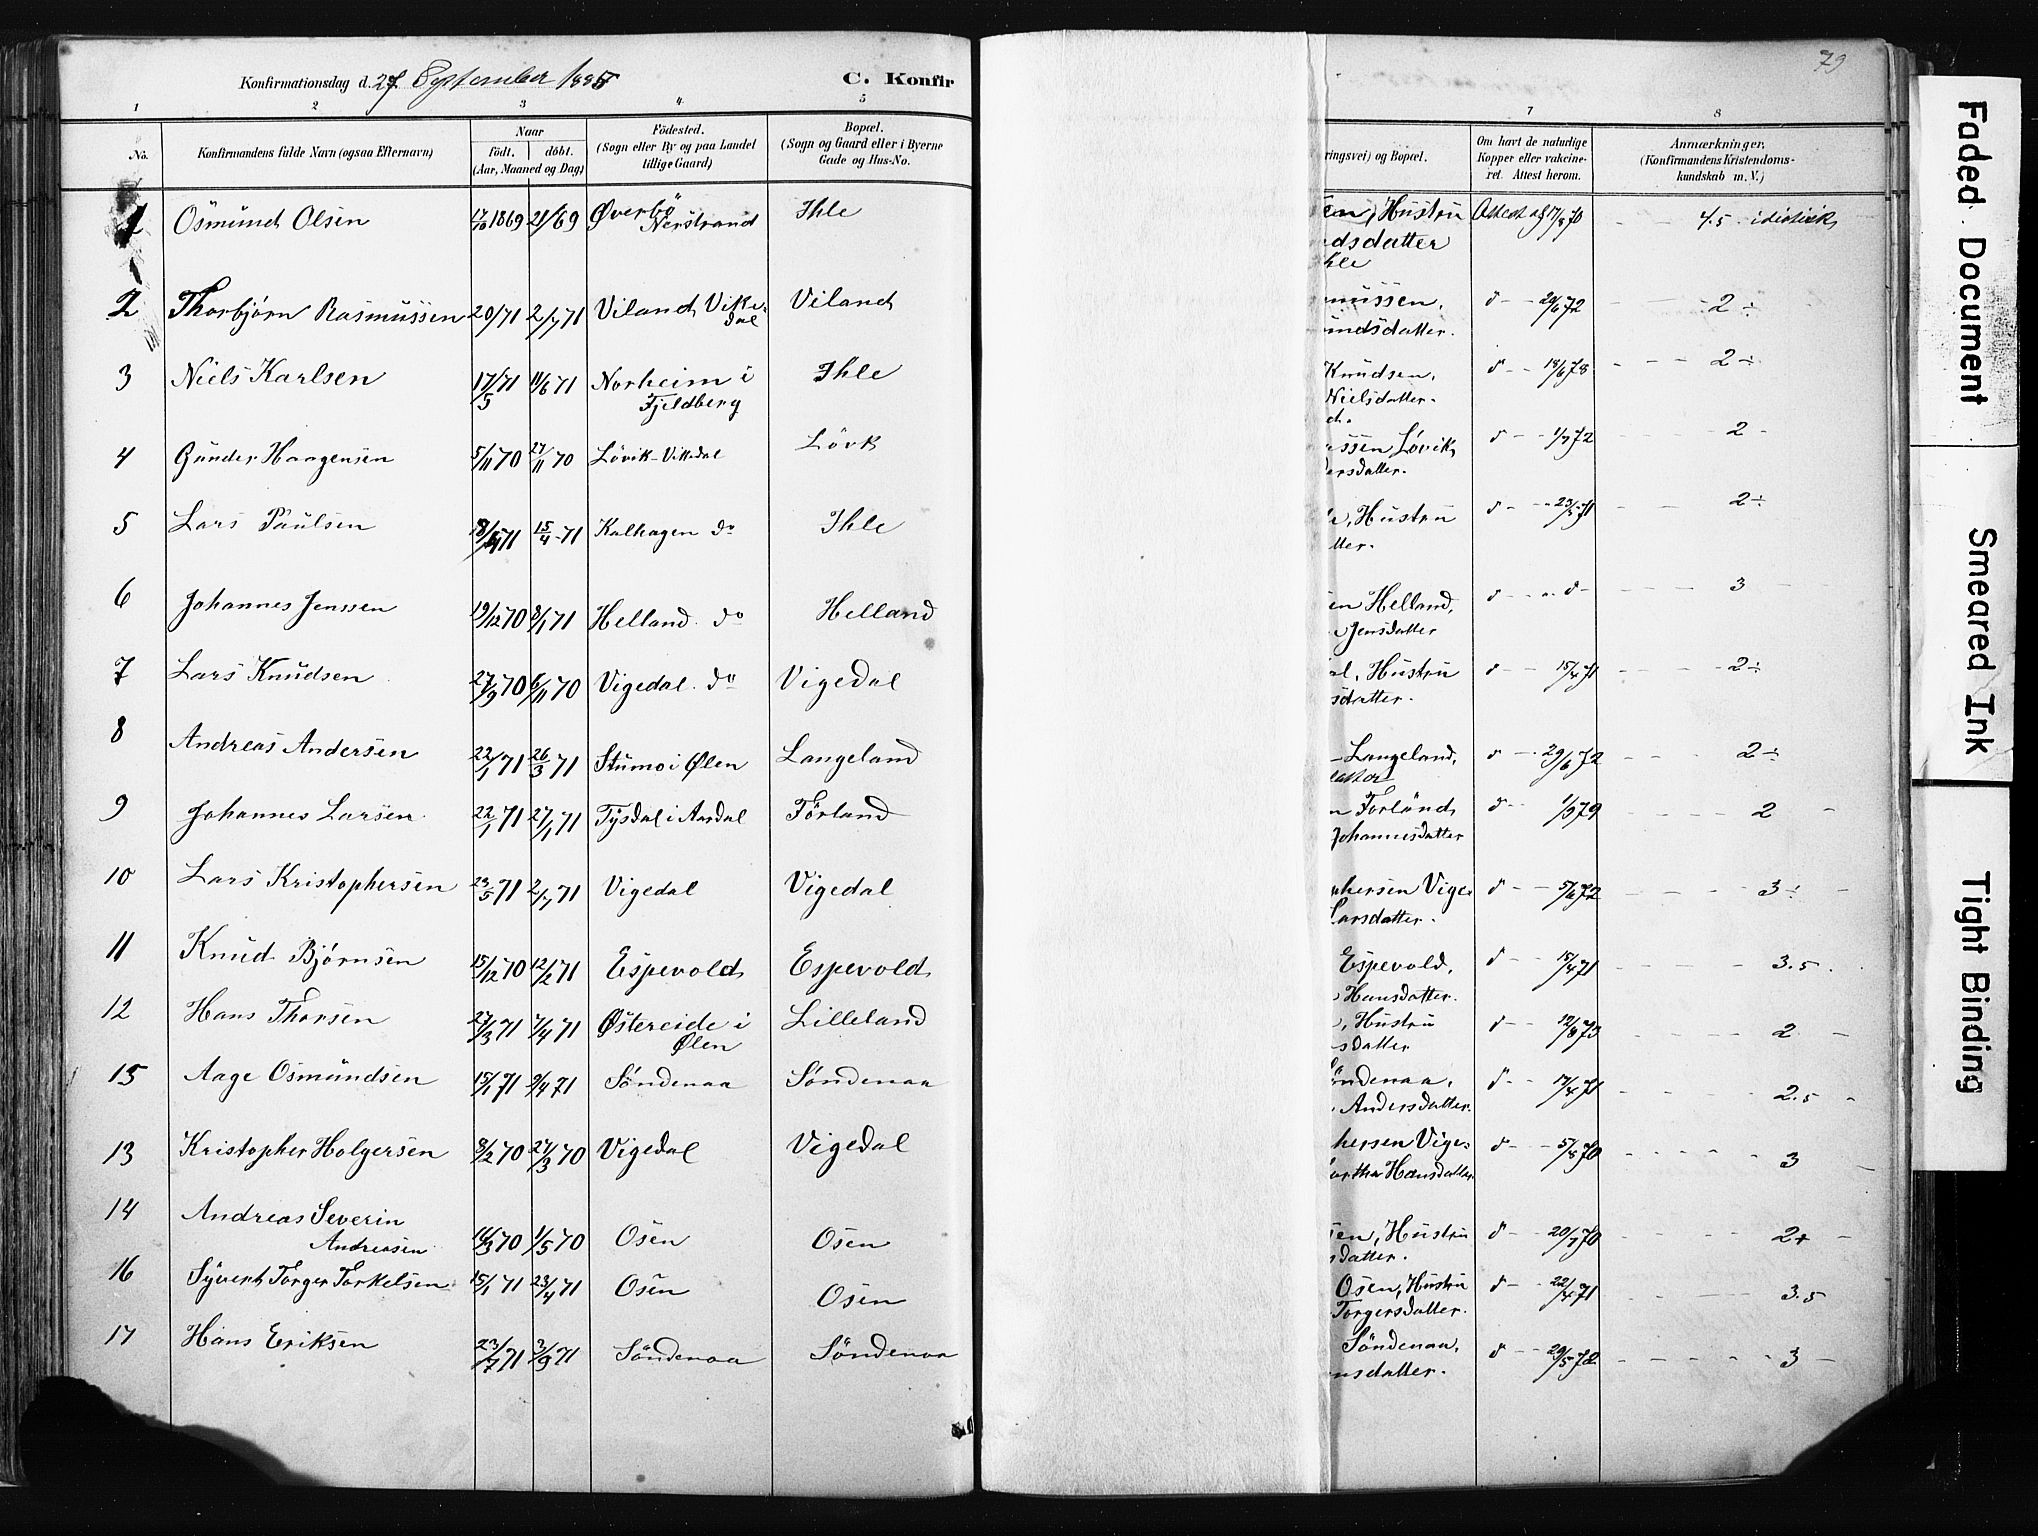 79
Konfirmationsdag d. 27 September 1885
C. Konfir
1 2 3 4 5 7 8
No. Konfirmandens fulde Navn (ogsaa Efternavn) Naar Födested. Bopæl. ringsvei) og Bopæl. Om havt de naturlige Anmærkninger.
födt. döbt. (Sogn eller By og paa Landet (Sogn og Gaard eller i Byerne Kopper eller vakcine- (Konfirmandens Kristendoms-
(Aar, Maaned og Dag) tillige Gaard) Gade og Hus-No. ret. Attest herom. kundskab m. V.)
1 Osmund Olsen 17/10 1869 21/ 69 Øverbö Ihle Hustru Attest af 17/8 70 4.5 idiotisk
Nerstrand dsdatter
hle
2 Thorbjørn Rasmussen 20/ 71 2/7 71 Viland Vike- Viland mussen, d - - 29/6 72 2 ÷
dal undsdatter.
3 Niels Karlsen 17/5 71 11/6 71 Norheim i Ihle Knudsen, d - - 18/6 78 2 ÷
Fjeldberg Nielsdatter.
4 Gunder Haagensen 5/11 70 27/11 70 Lövik-Vikedal Lövk ssen Lövik, d - - 1/7 72 2
dersdatter.
5 Lars Paulsen 71 15/4 71 Kalhagen do Ihle Hustru d - - 23/5 71 2 ÷
tter.
6 Johannes Jenssen 19/12 70 8/1 71 Helland do Helland en Helland, d - - d - 3
Jensdatter
7 Lars Knudsen 27/9 70 6/11 70 Vigedal do Vigedal al, Hustru d - - 15/4 71 2 ÷
sdatter.
8 Andreas Andersen 22/1 71 26/3 71 Stumo i Ølen Langeland Langeland, d - - 29/6 72 2 ÷
9 Johannes Larsen 22/1 71 27/1 71 Tysdal i Aardal Förland n Forland, d - - 1/9 79 2
Johannesdatter
10 Lars Kristophersen 23/5 71 2/7 71 Vigedal Vigedal phersen Vige- d - - 5/6 72 3 ÷
Larsdatter.
11 Knud Bjørnsen 15/12 70 12/2 71 Espevold Espevold Espevold, d - - 15/4 71 3.5
Hansdatter.
12 Hans Thorsen 27/3 71 7/4 71 Østereide i Lilleland Hustru d - - 12/8 73 2
Ølen sdatter
15 Aage Osmundsen 15/1 71 9/4 71 Söndenaa Söndenaa öndenaa, d - - 17/4 71 2.5
Andersdatter.
13 Kristopher Holgersen 8/2 70 27/3 70 Vigedal Vigedal hersen Vige- d - - 5/8 70 3
artha Hansdatter
14 Andreas Severin 70 1/5 70 Osen Osen en, Hustru d - - 20/7 70 2+
Andreasen sdatter.
16 Syvert Torger Torkelsen 15/1 71 23/4 71 Osen Osen Osen, Hustru d - - 22/4 71 3.5
Torgersdatter.
17 Hans Eriksen 23/7 71 3/9 71 Söndenaa Söndenaa Söndenaa, d - - 29/5 72 3
nsdatter.
Faded Document
Smeared Ink
Tight Binding